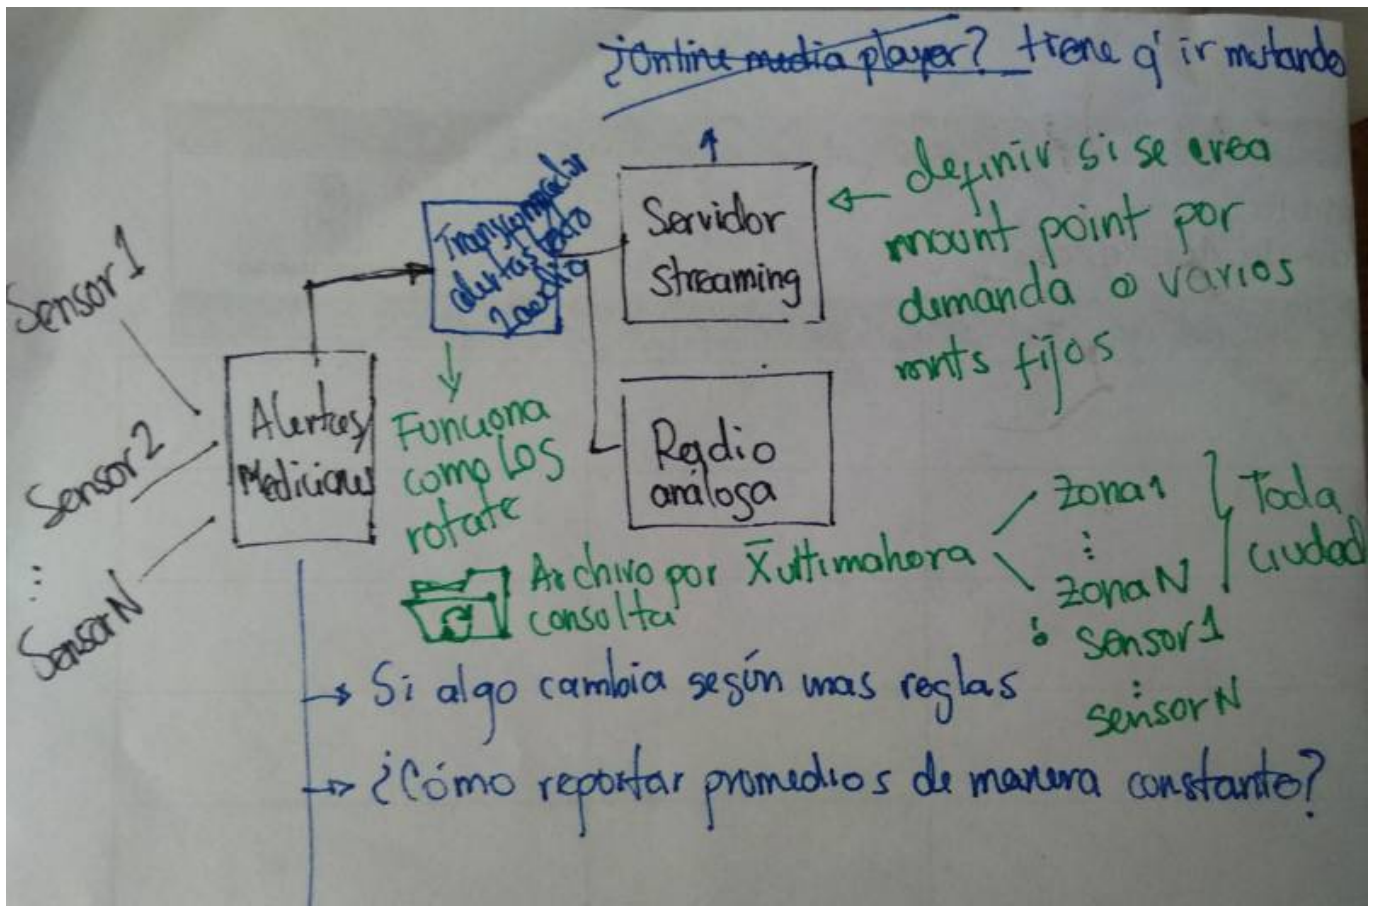 ¿Online media player? tiene q' ir mutando
Sensor 1
Sensor 2
...
Sensor N
Alertas/
Mediciones
Transformador
alertas texto
2audio
Servidor
streaming
Radio
análoga
definir si se crea
mount point por
demanda o varios
mnts fijos
Funciona
como los
rotate
Archivo por X̅ ultimahora
consulta
zona 1
⋮
zona N
Toda
ciudad
ó sensor 1
⋮
sensor N
Si algo cambia según unas reglas
¿Cómo reportar promedios de manera constante?